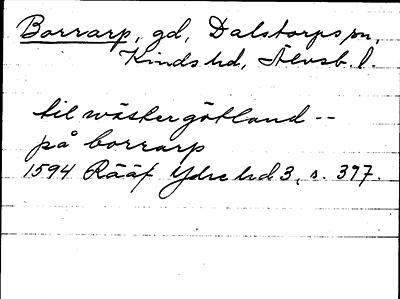 Borrarp, gd, Dalstorps sn,
Kinds hd, Älvsb. l.
til wästergötland --
på borrarp
1594 Rääf Ydre hd 3, s. 397.